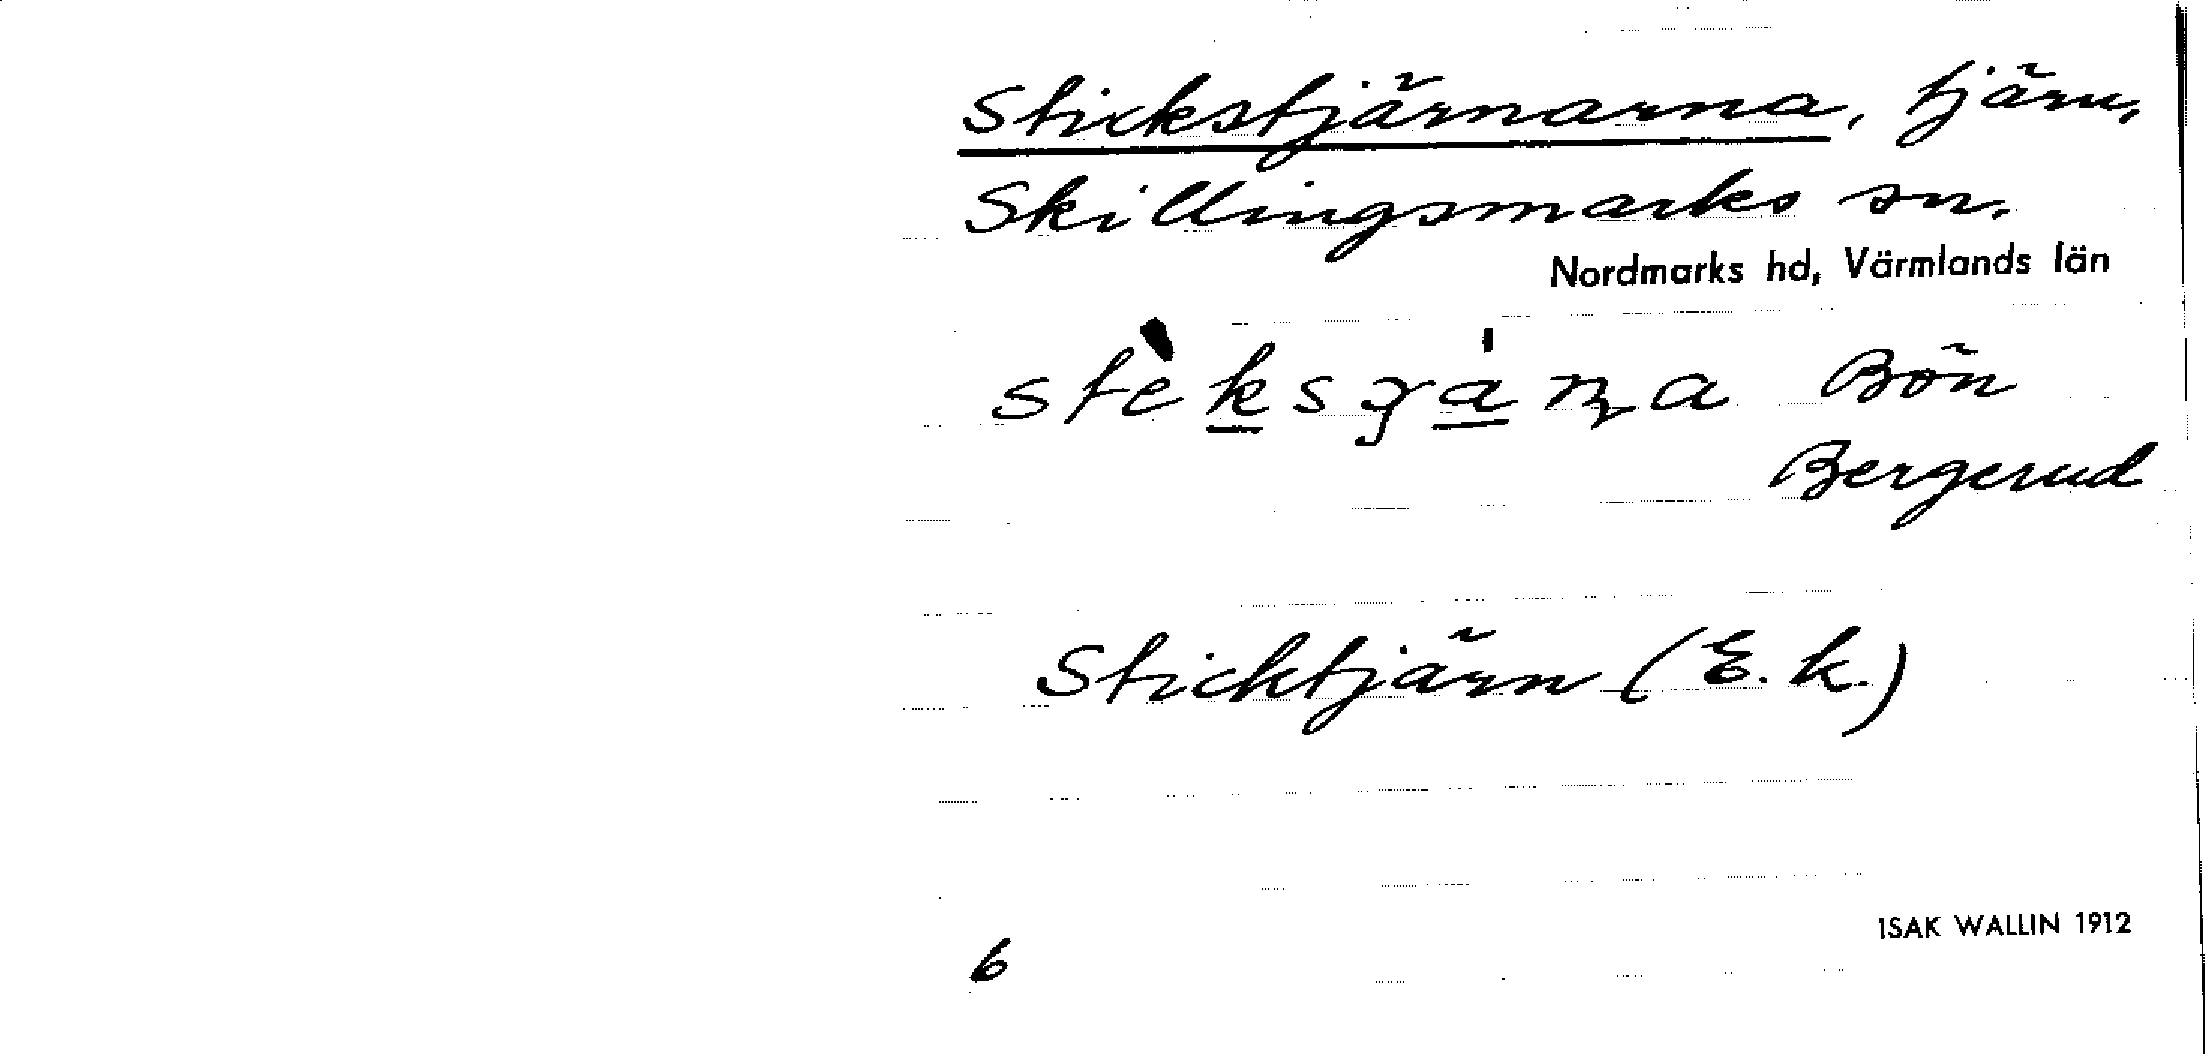 Stickstjärnarna, tjärn,
Skillingsmarks sn.
Nordmarks hd, Värmlands län
Bön
Bergerud
Sticktjärn (E.k.)
ISAK WALLIN 1912
6